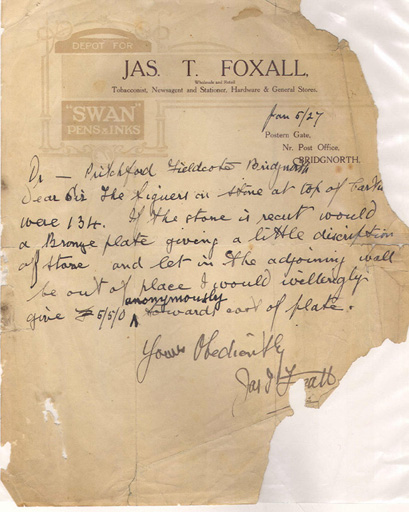 DEPOT FOR
"SWAN"
PENS & INKS
JAS. T. FOXALL,
Wholesale and Retail
Tobacconist, Newsagent and Stationer, Hardware & General Stores,
Jan 5/27
Postern Gate,
Nr. Post Office,
BRIDGNORTH.
Dr – Pritchford Fieldcote Bridgnorth
Dear Sir The figuers on stone at top of
were 134. If the stone is recut would
a Bronze plate giving a little discription
of stone and let in the adjoining wall
be out of place I would willengly
anonymously
give £5/5/0 towards cost of plate.
Yours Obediently
Jas T Foxall